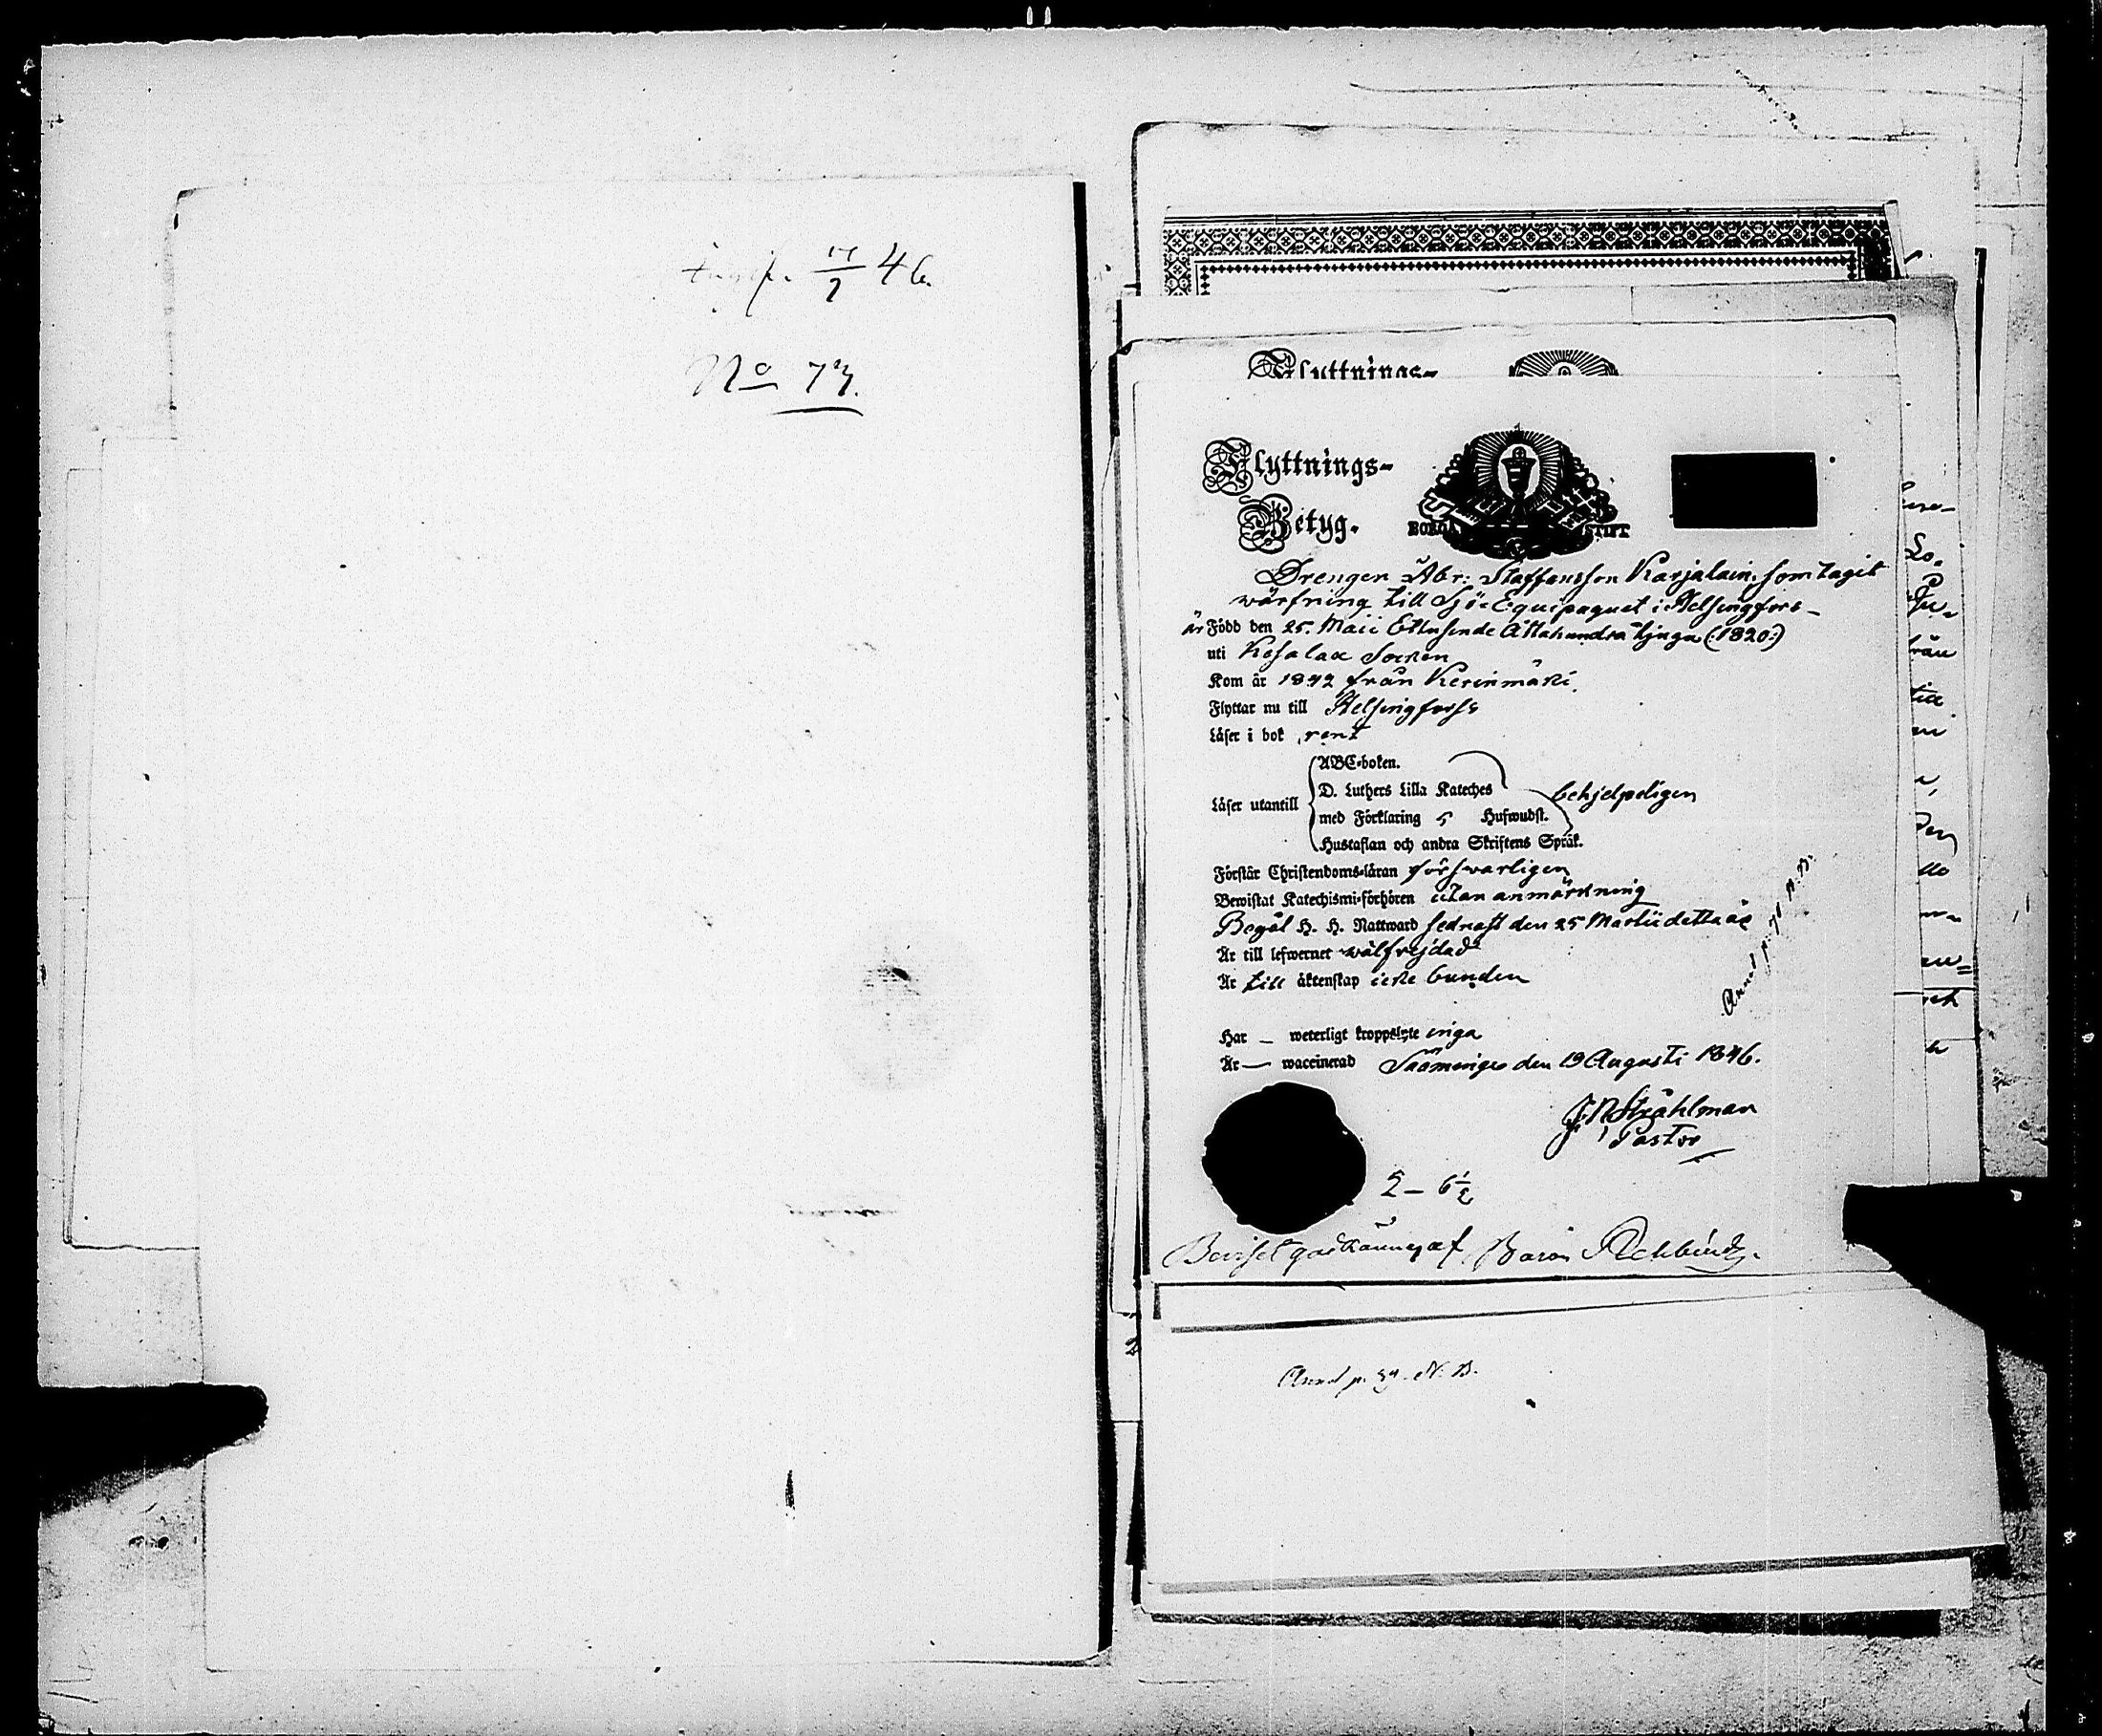 17/7 46.
No 73.
Flyttnings-
Flyttnings-
Betyg.
BORGÅ STIFT
Drengen Abr: Staffansson Karjalain, som tagit
wärfning till Sjö-Equipaguet i Helsingfors-
är Född den 25. Maii Ettusende Åttahundra tjugu (:1820:)
uti Kesalax Socken
Kom år 1842 från Kerimäki.
Flyttar nu till Helsingfors
Läser i bok rent
ABC-boken.
D. Luthers Lilla Kateches
Läser utantill behjelpeligen
med Förklaring 5 Hufwudst.
Hustaflan och andra Skriftens Språk.
Förstår Christendoms-läran förswarligen
Bewistat Katechismi-förhören utan anmärkning
Begåt H. H. Nattward sednast den 25 Martii detta år
Är till lefwernet wälfrejdad
Är till äktenskap icke bunden
Har — weterligt kroppslyte inga
Är — waccinerad Sääminge den 19 Augusti 1846.
J. N. Stråhlman
Pastor
Annot p. 71 N. B.
2 – 6 1/2
Beviset godkännes af Baron Rehbinder.
Annot p. 39. N. B.